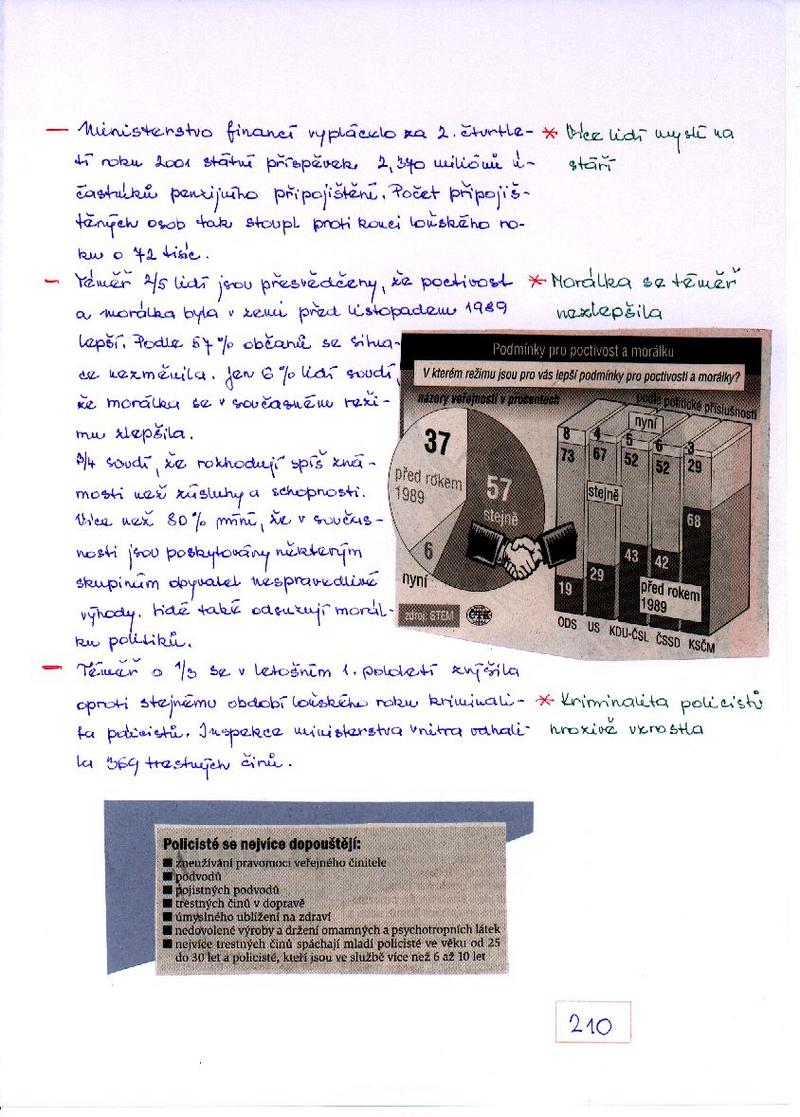 – Ministerstvo financí vyplácelo za 2. čtvrtle-
tí roku 2001 státní příspěvek 2,370 miliónů ú-
častníků penzijního připojištění. Počet připojiš-
těných osob tak stoupl proti konci loňského ro-
ku o 72 tisíc.
* Více lidí myslí na
stáří
– Téměř 2/5 lidí jsou přesvědčeny, že poctivost
a morálka byla v zemi před listopadem 1989
lepší. Podle 57% občanů se situa-
ce nezměnila. Jen 6% lidí soudí,
že morálka se v současném reži-
mu zlepšila.
3/4 soudí, že rozhodují spíš zná-
mosti než zásluhy a schopnosti.
Více než 80% míní, že v součas-
nosti jsou poskytovány některým
skupinám obyvatel nespravedlivé
výhody. Lidé také odsuzují morál-
ku politiků.
* Morálka se téměř
nezlepšila
Podmínky pro poctivost a morálku
V kterém režimu jsou pro vás lepší podmínky pro poctivost a morálky?
názory veřejnosti v procentech
37
před rokem
1989
57
stejně
6
nyní
zdroj: STEM
ČTK
podle politické příslušnosti
nyní
8 4 5 6 3
73 67 52 52 29
stejně
19 29 43 42 68
před rokem
1989
ODS US KDU-ČSL ČSSD KSČM
– Téměř o 1/3 se v letošním 1. pololetí zvýšila
oproti stejnému období loňského roku kriminali-
ta policistů. Inspekce ministerstva vnitra odhali-
la 369 trestných činů.
* Kriminalita policistů
hrozivě vzrostla
Policisté se nejvíce dopouštějí:
■ zneužívání pravomoci veřejného činitele
■ podvodů
■ pojistných podvodů
■ trestných činů v dopravě
■ úmyslného ublížení na zdraví
■ nedovolené výroby a držení omamných a psychotropních látek
■ nejvíce trestných činů spáchají mladí policisté ve věku od 25
do 30 let a policisté, kteří jsou ve službě více než 6 až 10 let
210